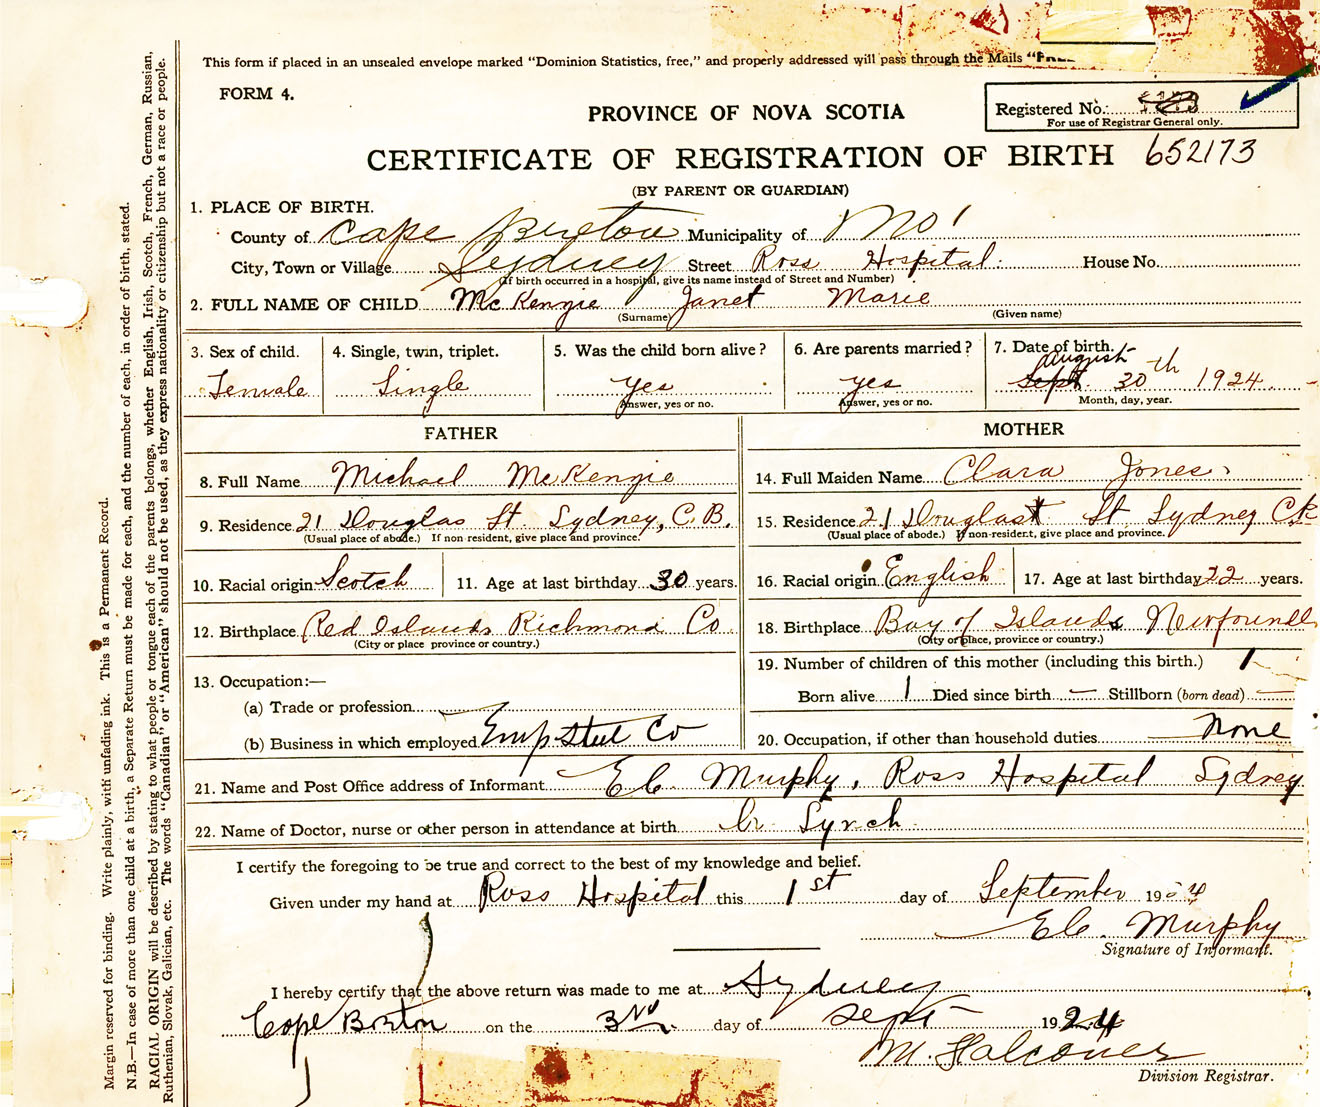 This form if placed in an unsealed envelope marked "Dominion Statistics, free," and properly addressed will pass through the Mails "FREE
FORM 4.
Registered No.:
For use of Registrar General only.
PROVINCE OF NOVA SCOTIA
CERTIFICATE OF REGISTRATION OF BIRTH 652173
(BY PARENT OR GUARDIAN)
1. PLACE OF BIRTH.
County of Cape Breton Municipality of
City, Town or Village Sydney Street Ross Hospital House No.
(If birth occurred in a hospital, give its name instead of Street and Number)
2. FULL NAME OF CHILD McKenzie Janet Marie
(Surname) (Given name)
3. Sex of child. 4. Single, twin, triplet. 5. Was the child born alive? 6. Are parents married? 7. Date of birth.
Female Single yes yes August Sept 30th 1924
Answer, yes or no. Answer, yes or no. Month, day, year.
FATHER MOTHER
8. Full Name Michael McKenzie 14. Full Maiden Name Clara Jones
9. Residence 21 Douglas St. Sydney, C.B. 15. Residence 21 Douglas St Sydney
(Usual place of abode.) If non-resident, give place and province. (Usual place of abode.) If non-resident, give place and province.
10. Racial origin Scotch 11. Age at last birthday 30 years. 16. Racial origin English 17. Age at last birthday 22 years.
12. Birthplace Red Islands Richmond Co 18. Birthplace Bay of Islands Newfoundl
(City or place province or country.) (City or place, province or country.)
13. Occupation:— 19. Number of children of this mother (including this birth.) 1
(a) Trade or profession Born alive 1 Died since birth — Stillborn (born dead) —
(b) Business in which employed Emp Steel Co 20. Occupation, if other than household duties None
21. Name and Post Office address of Informant E.C. Murphy, Ross Hospital Sydney
22. Name of Doctor, nurse or other person in attendance at birth Dr Lynch
I certify the foregoing to be true and correct to the best of my knowledge and belief.
Given under my hand at Ross Hospital this 1st day of September 1924
E.C. Murphy
Signature of Informant.
I hereby certify that the above return was made to me at Sydney
Cape Breton on the 3rd day of Sept 1924
M. Falconer
Division Registrar.
Margin reserved for binding. Write plainly, with unfading ink. This is a Permanent Record.
N.B.—In case of more than one child at a birth, a Separate Return must be made for each, and the number of each, in order of birth, stated.
RACIAL ORIGIN will be described by stating to what people or tongue each of the parents belongs, whether English, Irish, Scotch, French, German, Russian,
Ruthenian, Slovak, Galician, etc. The words "Canadian" or "American" should not be used, as they express nationality or citizenship but not a race or people.